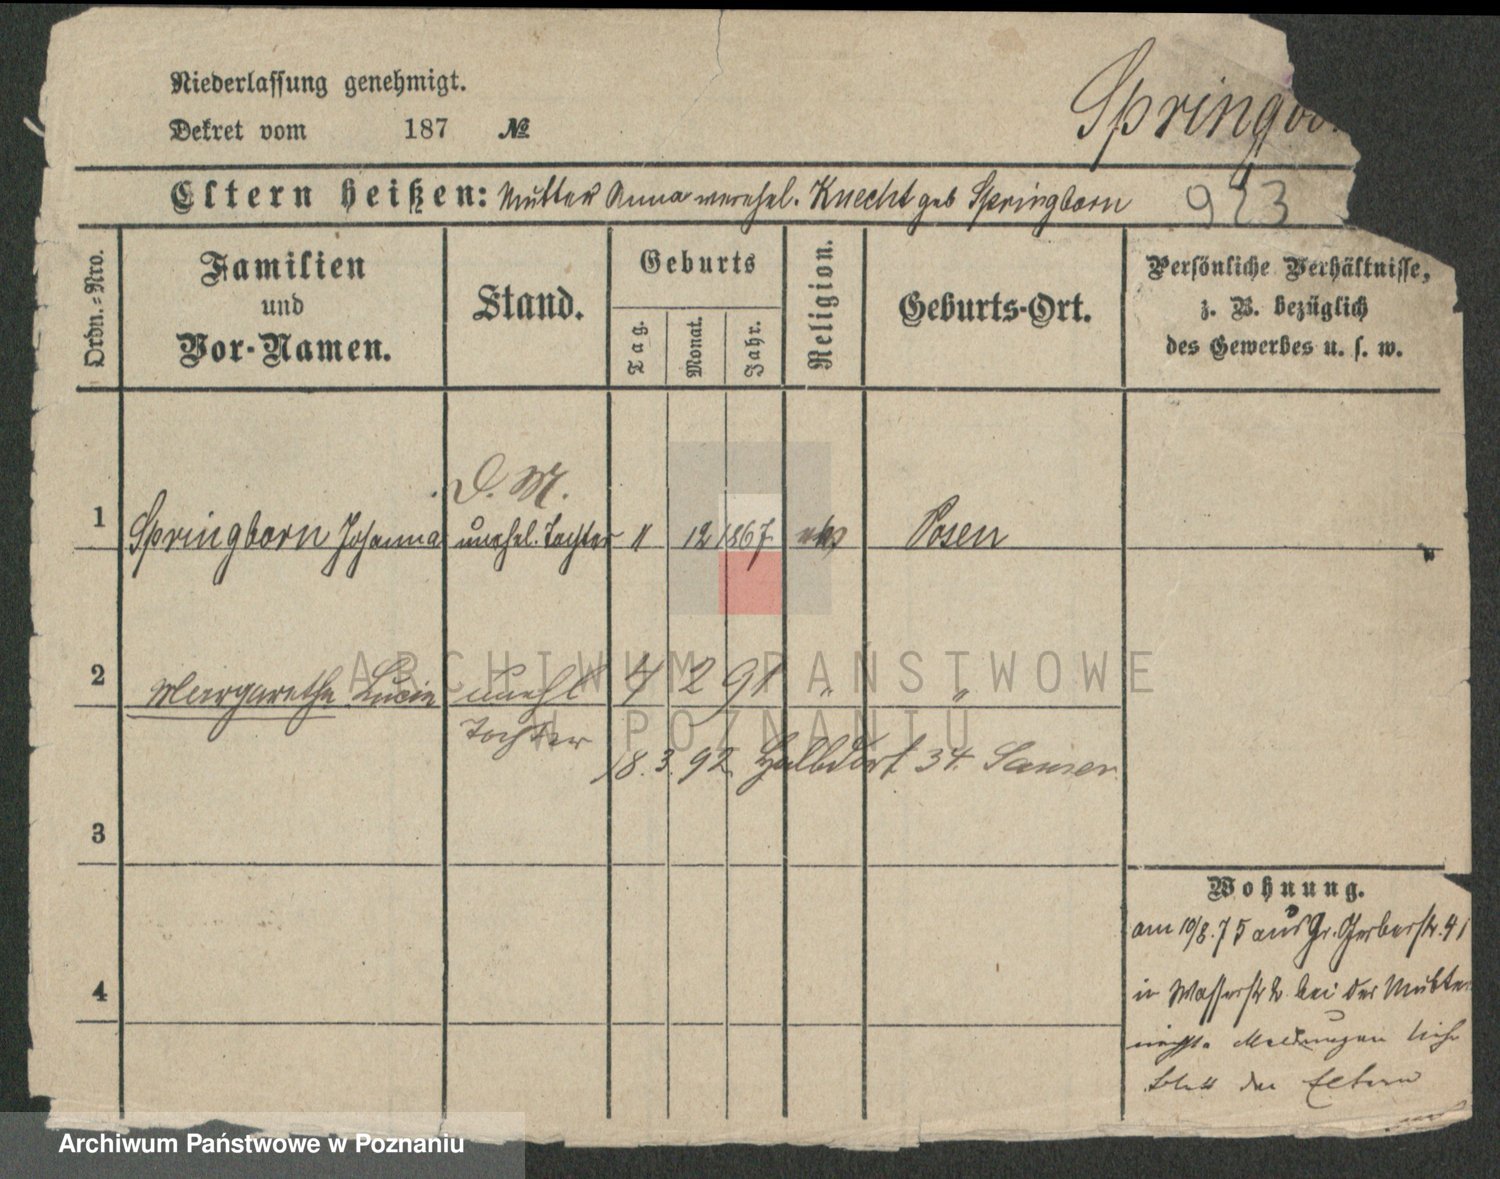 Niederlassung genehmigt.
Dekret vom 187 №
Springbo
Eltern heißen: Mutter Anna verehel. Knecht geb Springborn
923
Ordn.-Nro.
Familien und Vor-Namen.
Stand.
Geburts
Tag.
Monat.
Jahr.
Religion.
Geburts-Ort.
Persönliche Verhältnisse,
z. B. bezüglich
des Gewerbes u. s. w.
D. M.
1 Springborn Johanna unehel. Tochter 11 12 1867 Posen
2 Margarethe Lucie unehl 4 2 91 " "
Tochter
18. 3. 92 Halbdorf 34.
3
Wohnung.
am 10/8.75 aus Gr. Gerberstr. 41
in Wasserstr 2 bei der Mutter
Meldungen siehe
Blatt der Eltern
4
ARCHIWUM PAŃSTWOWE
W POZNANIU
Archiwum Państwowe w Poznaniu